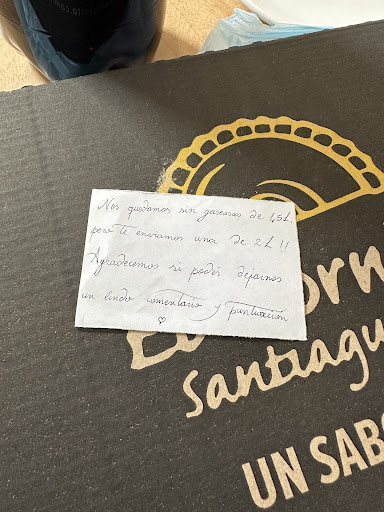 Nos quedamos sin gaseosas de 1,5L,
pero te enviamos una de 2L!!
Agradecemos si podés dejarnos
un lindo comentario y puntuación
♡
Santiagu
UN SABO